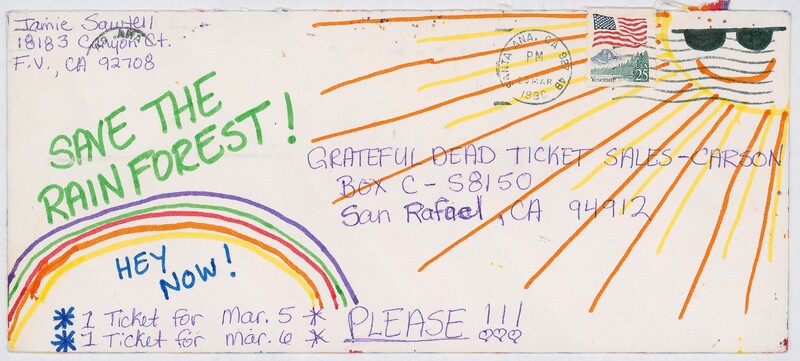 Jamie Sawtell
18183 Canyon Ct.
F.V., CA 92708
SANTA ANA, CA
PM
MAR
1990
Yosemite
25
SAVE THE
RAINFOREST!
GRATEFUL DEAD TICKET SALES-CARSON
BOX C-S8150
San Rafael, CA 94912
HEY
NOW!
* 1 Ticket for Mar. 5 *
* 1 Ticket for mar. 6 *
PLEASE !!!